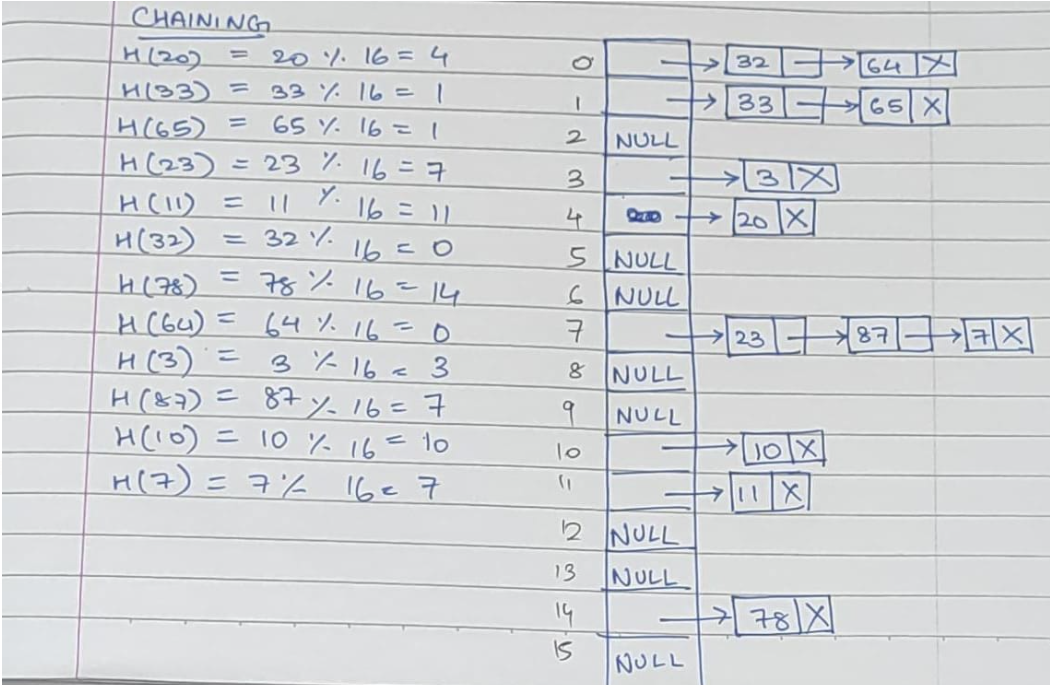 CHAINING
H(20) = 20 % 16 = 4
H(33) = 33 % 16 = 1
H(65) = 65 % 16 = 1
H(23) = 23 % 16 = 7
H(11) = 11 % 16 = 11
H(32) = 32 % 16 = 0
H(78) = 78 % 16 = 14
H(64) = 64 % 16 = 0
H(3) = 3 % 16 = 3
H(87) = 87 % 16 = 7
H(10) = 10 % 16 = 10
H(7) = 7 % 16 = 7
0 → 32 → 64 X
1 → 33 → 65 X
2 NULL
3 → 3 X
4 → 20 X
5 NULL
6 NULL
7 → 23 → 87 → 7 X
8 NULL
9 NULL
10 → 10 X
11 → 11 X
12 NULL
13 NULL
14 → 78 X
15 NULL